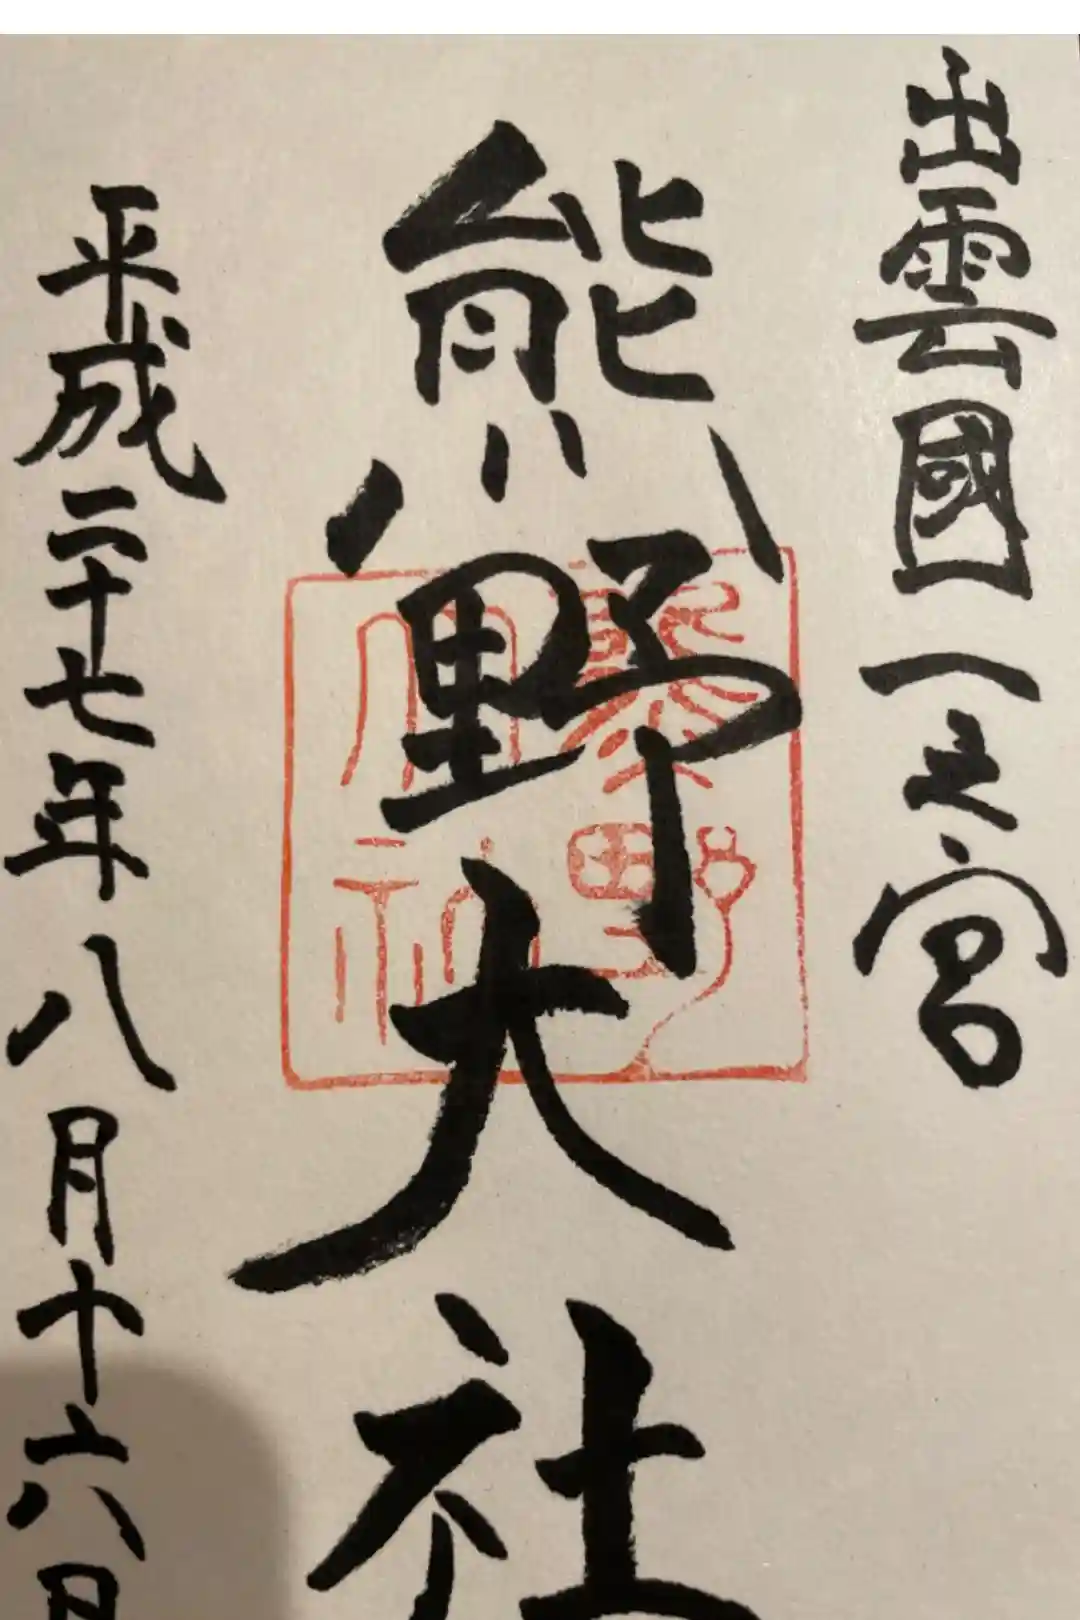 出雲國一之宮
熊野大社
平成二十七年八月十六日
熊野
大社